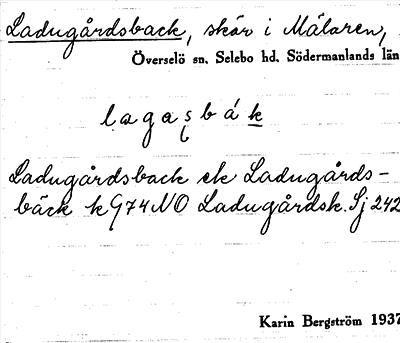 Ladugårdsback, skär i Mälaren,
Överselö sn. Selebo hd. Södermanlands län
lagasbák
Ladugårdsback ek Ladugårds-
bäck kG74NO Ladugårdsk. Sj 242
Karin Bergström 1937